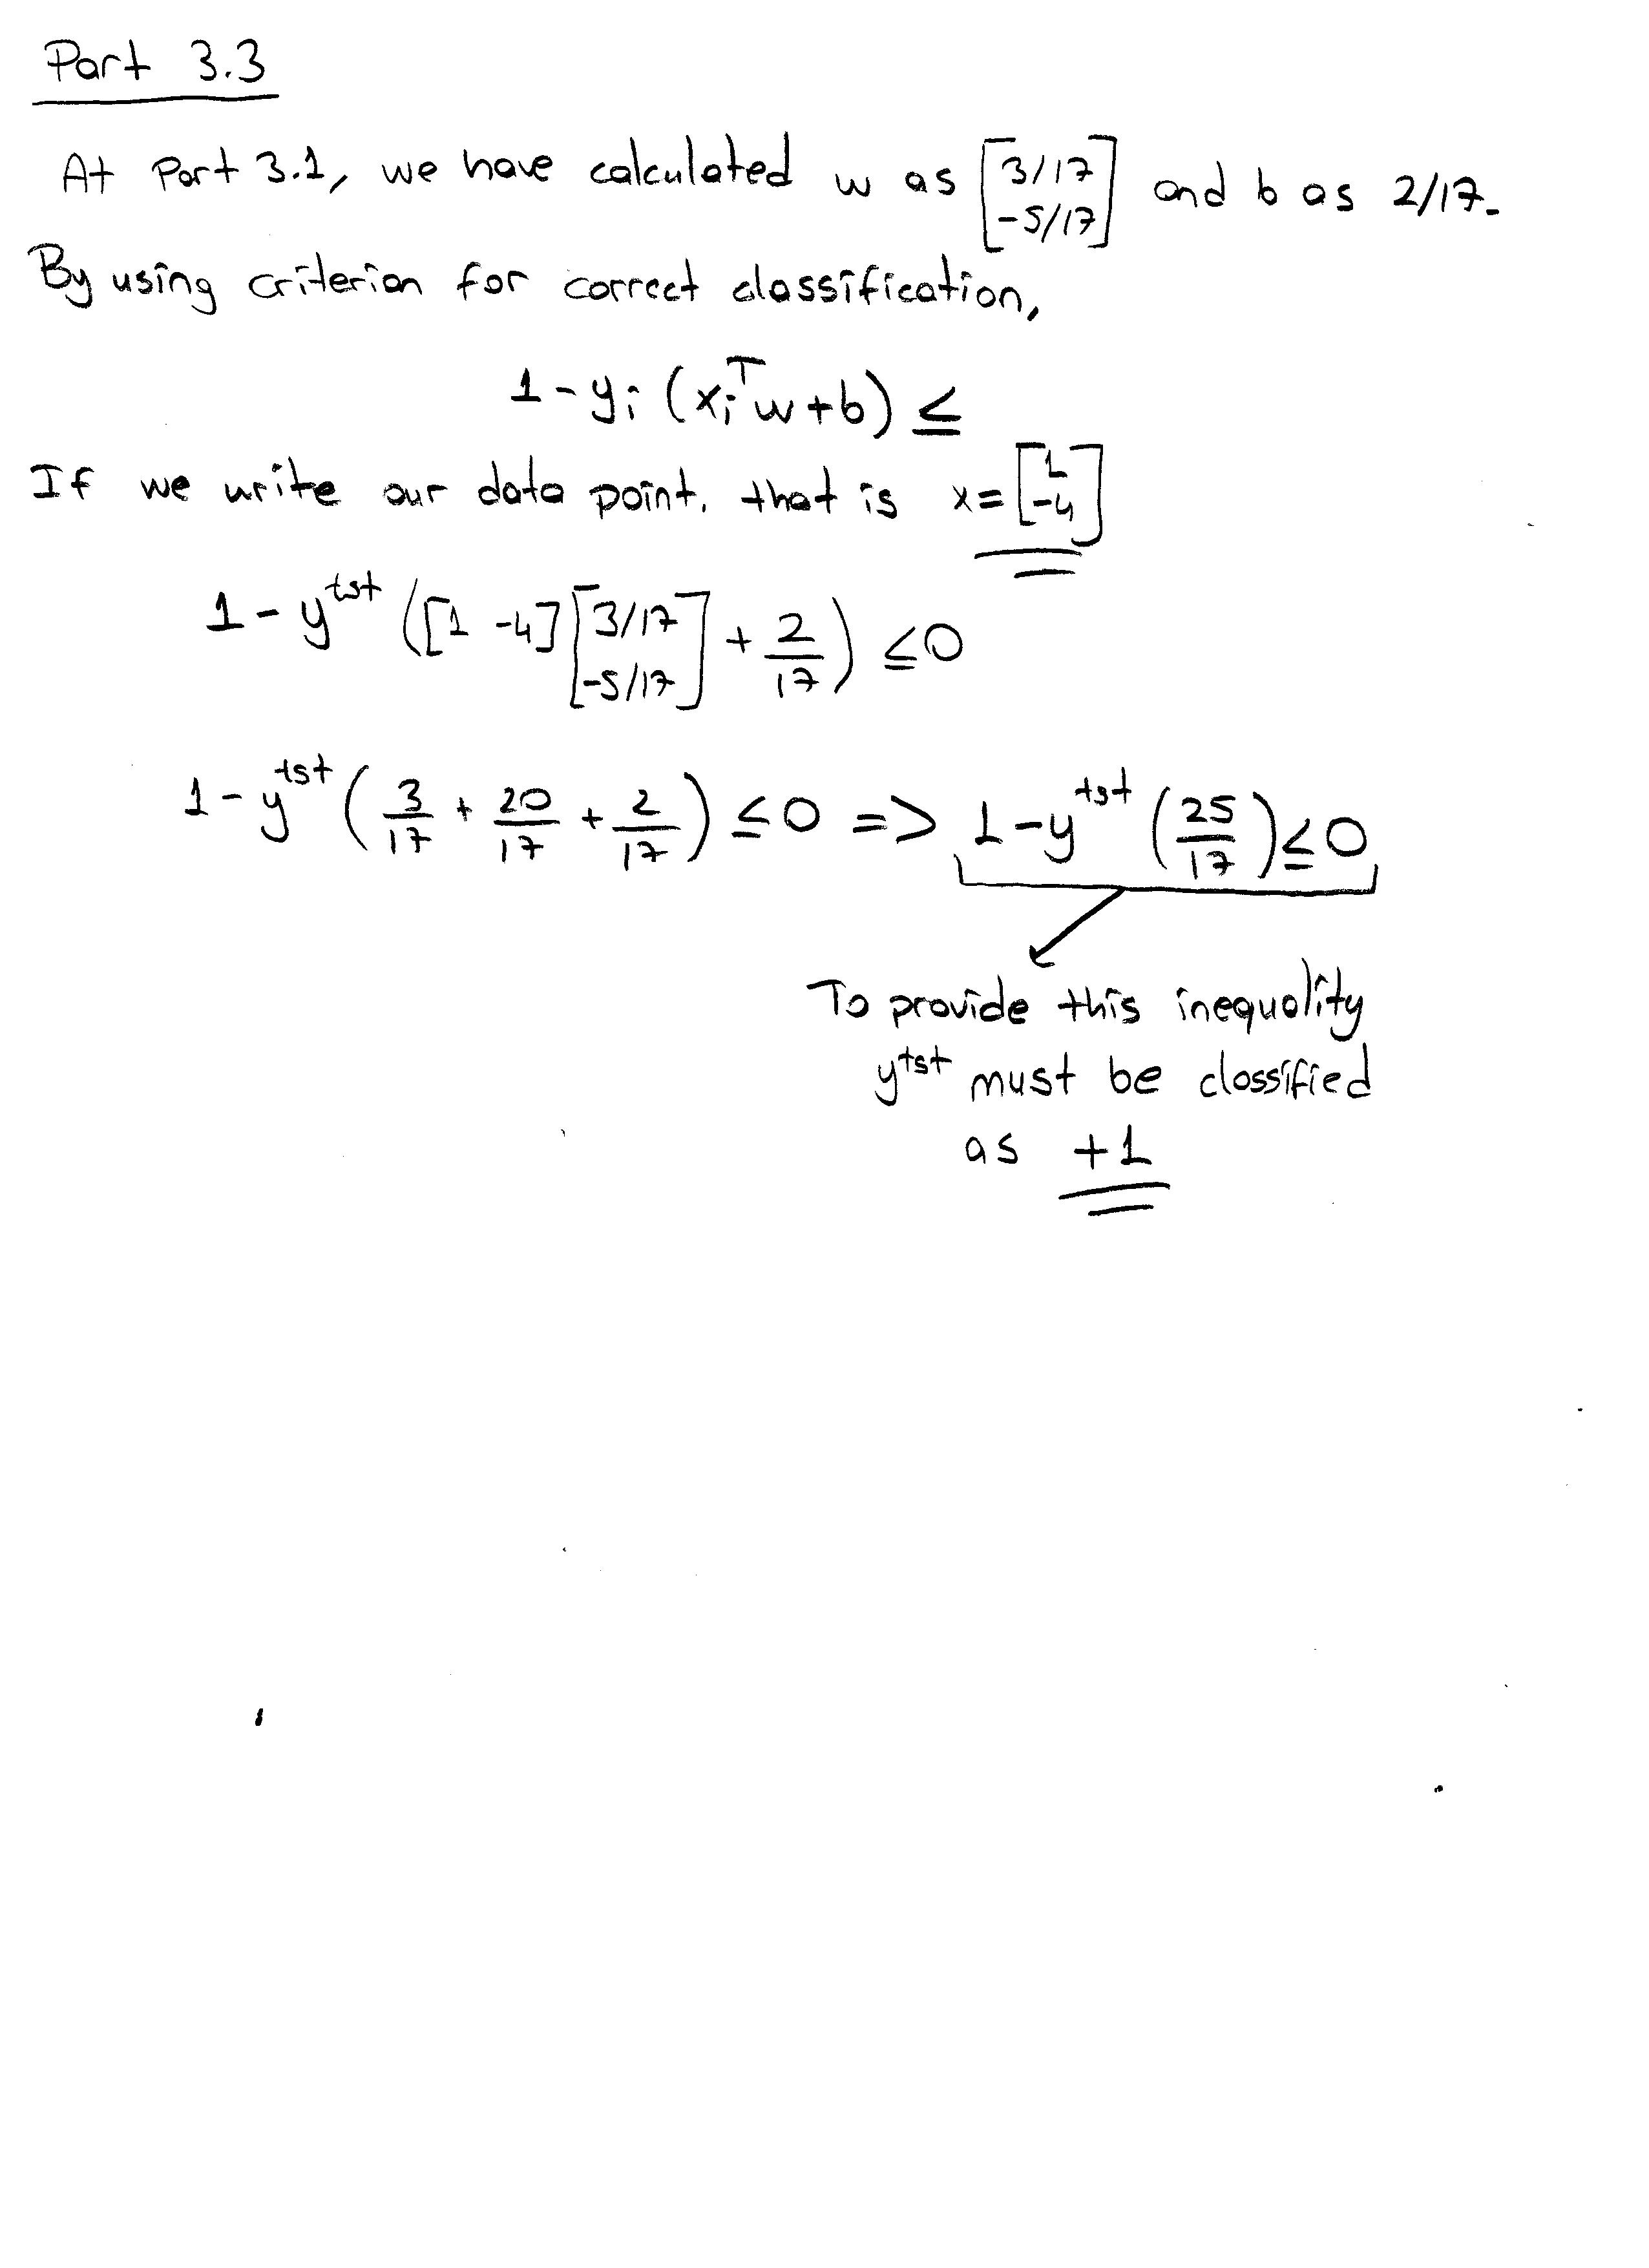 Part 3.3
At Part 3.1, we have calculated w as [3/17 -5/17] and b as 2/17.
By using criterion for correct classification,
1 - yᵢ (xᵢᵀw + b) ≤
If we write our data point. that is x = [1 -4]
1 - y^tst ([1 -4] [3/17 -5/17] + 2/17) ≤ 0
1 - y^tst (3/17 + 20/17 + 2/17) ≤ 0 => 1 - y^tst (25/17) ≤ 0
To provide this inequality
y^tst must be classified
as +1